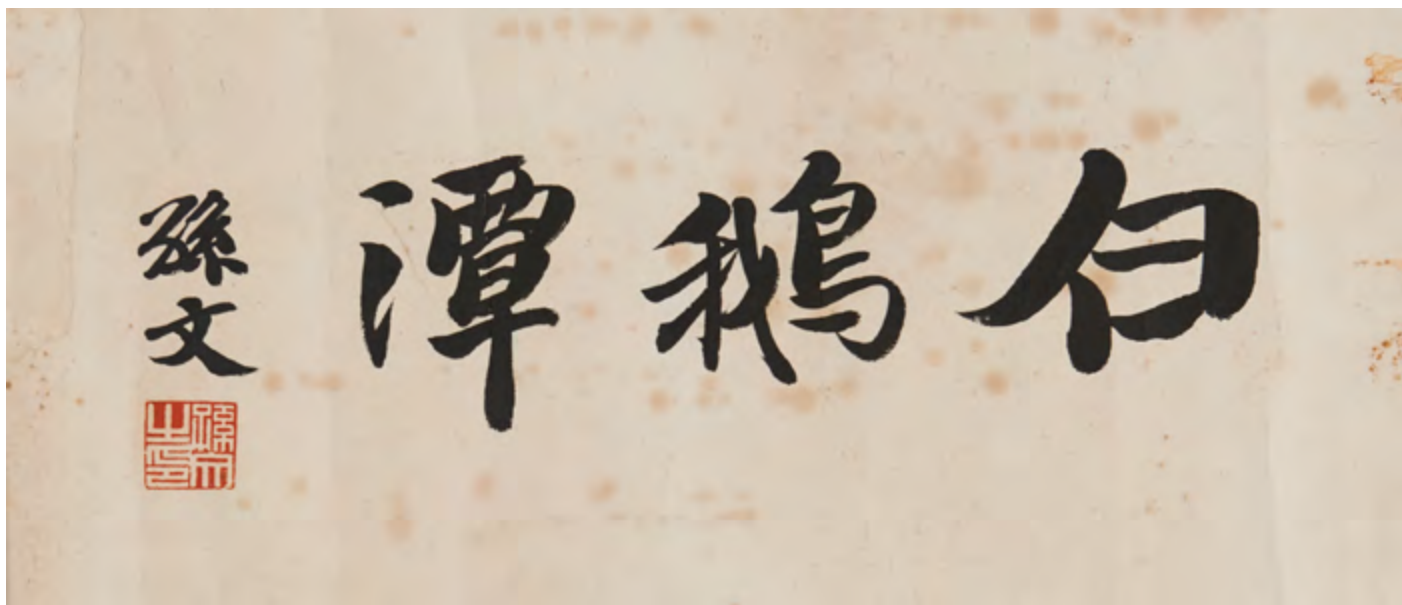 白鵝潭
孫文
孫文之印